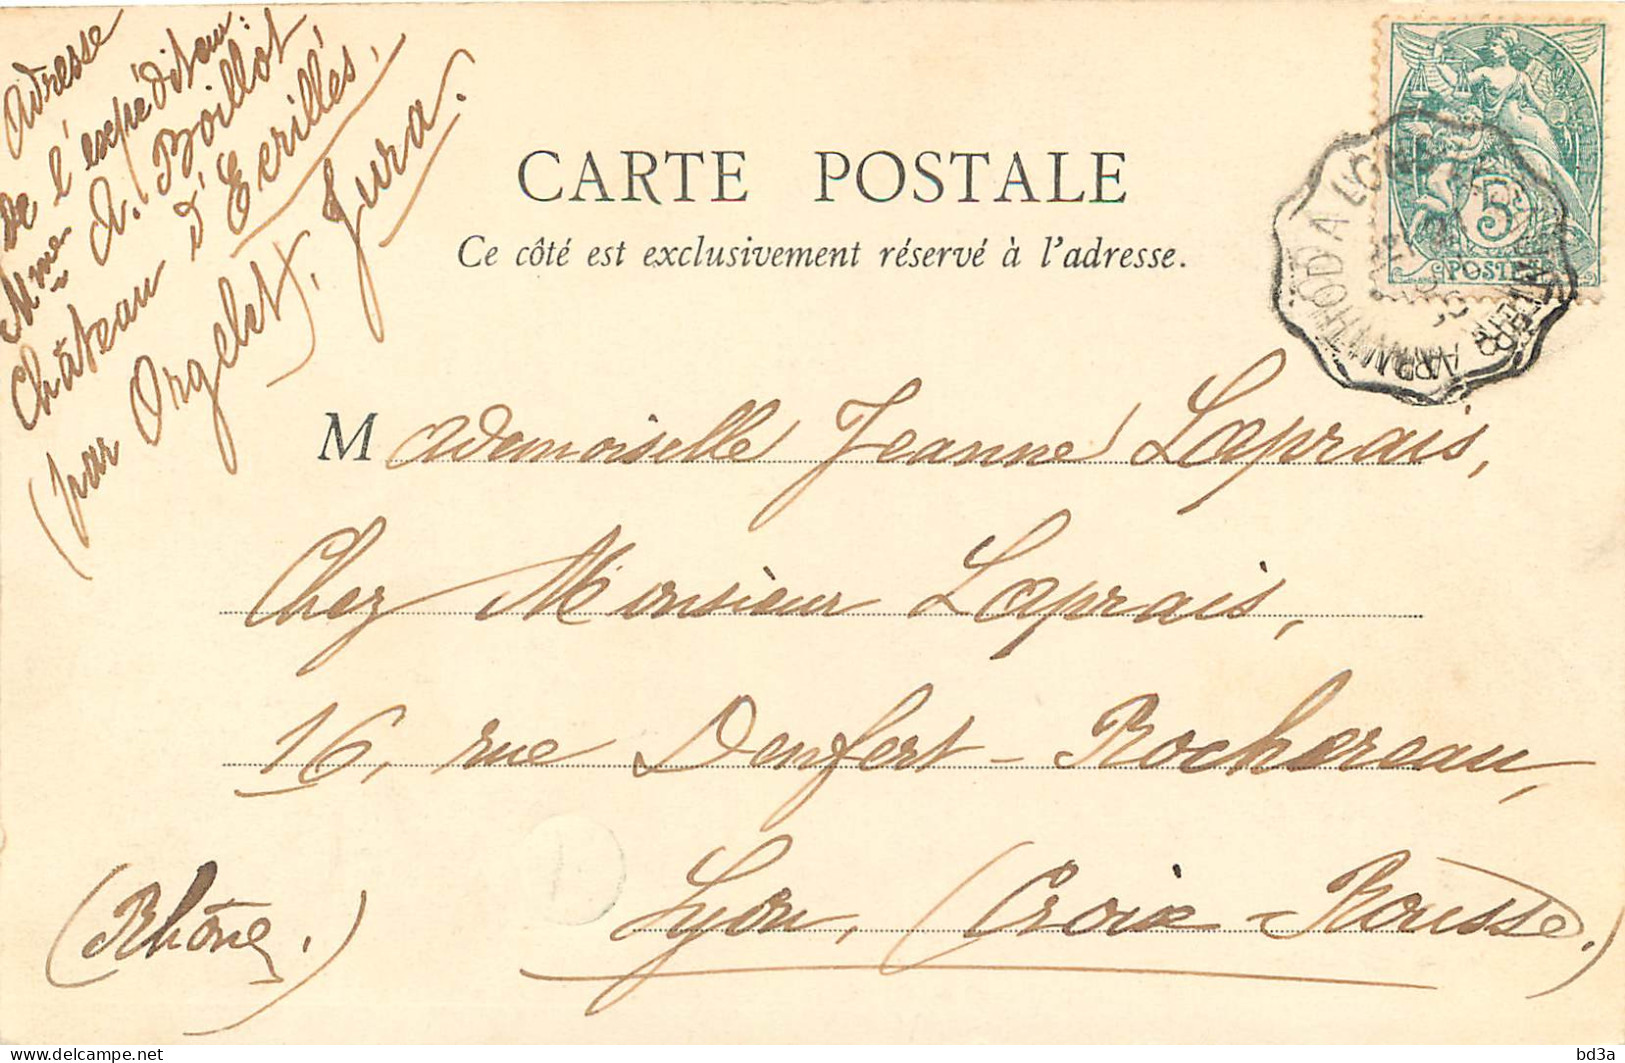 Adresse
de l'expéditeur:
Mme A. Boillot
Château d'Ecrilles,
(par Orgelet, Jura.
CARTE POSTALE
Ce côté est exclusivement réservé à l'adresse.
5
POSTES
Mademoiselle Jeanne Laprais,
Chez Monsieur Laprais,
16, rue Denfert-Rochereau,
Lyon, (Croix-Rousse.)
(Rhône.)
ARINTHOD A
delcampe.net
bd3a